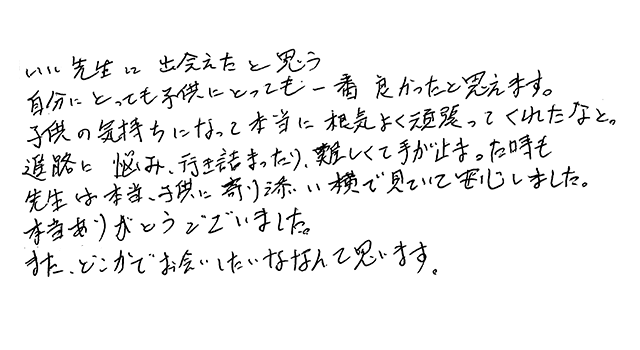 いい先生に出会えたと思う
自分にとっても子供にとっても一番良かったと思えます。
子供の気持ちになって本当に根気よく頑張ってくれたなと。
進路に悩み、行き詰まったり、難しくて手が止まった時も
先生は本当、子供に寄り添い横で見ていて安心しました。
本当ありがとうございました。
また、どこかでお会いしたいななんて思います。